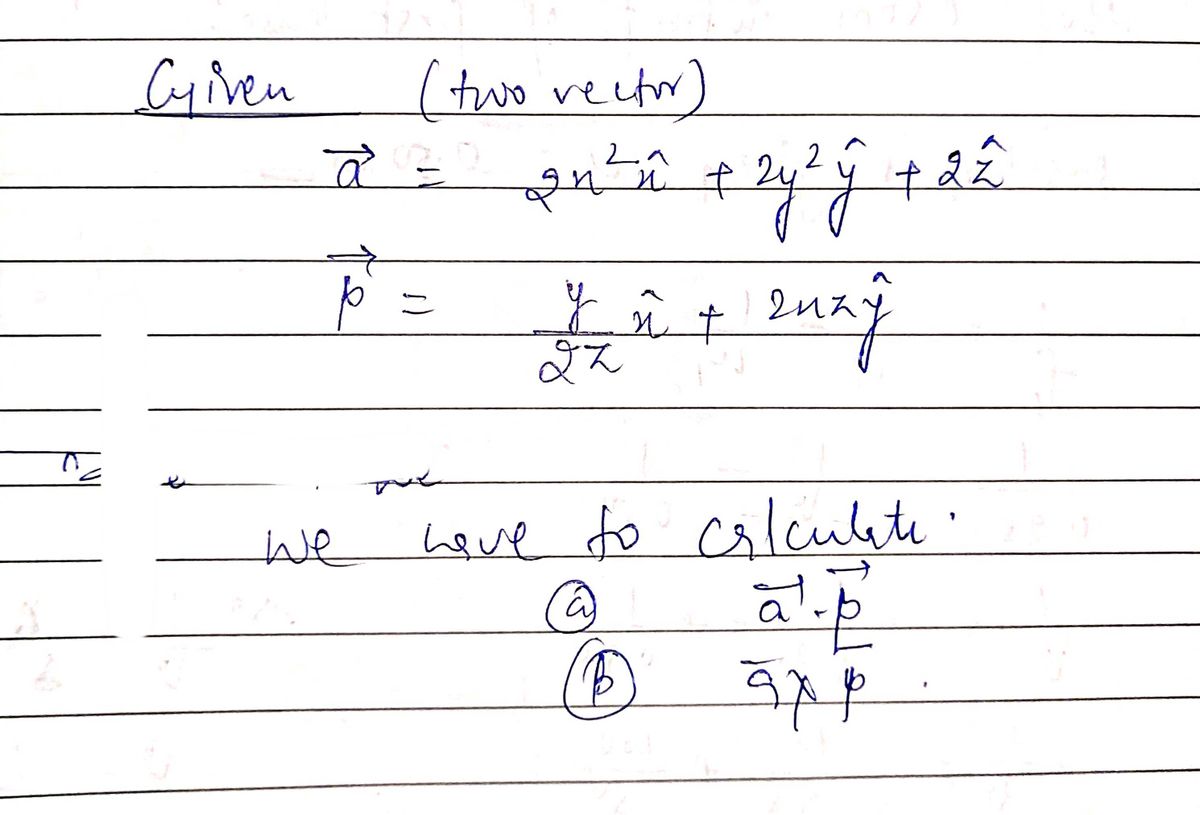 Given (two vector)
a⃗ = 2x² x̂ + 2y² ŷ + 2ẑ
p⃗ = y/2z x̂ + 2xz ŷ
we have to calculate.
ⓐ a⃗ . p⃗
ⓑ a⃗ × p⃗ .